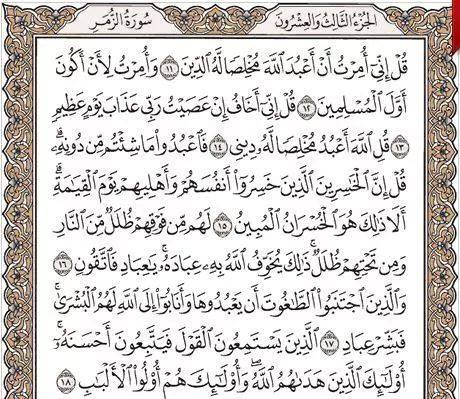 الجزء الثالث والعشرون سورة الزمر
قُلْ إِنِّىٓ أُمِرْتُ أَنْ أَعْبُدَ ٱللَّهَ مُخْلِصًا لَّهُ ٱلدِّينَ ١١ وَأُمِرْتُ لِأَنْ أَكُونَ
أَوَّلَ ٱلْمُسْلِمِينَ ١٢ قُلْ إِنِّىٓ أَخَافُ إِنْ عَصَيْتُ رَبِّى عَذَابَ يَوْمٍ عَظِيمٍ
١٣ قُلِ ٱللَّهَ أَعْبُدُ مُخْلِصًا لَّهُۥ دِينِى ١٤ فَٱعْبُدُوا۟ مَا شِئْتُم مِّن دُونِهِۦ ۗ
قُلْ إِنَّ ٱلْخَـٰسِرِينَ ٱلَّذِينَ خَسِرُوٓا۟ أَنفُسَهُمْ وَأَهْلِيهِمْ يَوْمَ ٱلْقِيَـٰمَةِ ۗ
أَلَا ذَٰلِكَ هُوَ ٱلْخُسْرَانُ ٱلْمُبِينُ ١٥ لَهُم مِّن فَوْقِهِمْ ظُلَلٌ مِّنَ ٱلنَّارِ
وَمِن تَحْتِهِمْ ظُلَلٌ ۚ ذَٰلِكَ يُخَوِّفُ ٱللَّهُ بِهِۦ عِبَادَهُۥ ۚ يَـٰعِبَادِ فَٱتَّقُونِ ١٦
وَٱلَّذِينَ ٱجْتَنَبُوا۟ ٱلطَّـٰغُوتَ أَن يَعْبُدُوهَا وَأَنَابُوٓا۟ إِلَى ٱللَّهِ لَهُمُ ٱلْبُشْرَىٰ ۚ
فَبَشِّرْ عِبَادِ ١٧ ٱلَّذِينَ يَسْتَمِعُونَ ٱلْقَوْلَ فَيَتَّبِعُونَ أَحْسَنَهُۥٓ ۚ
أُو۟لَـٰٓئِكَ ٱلَّذِينَ هَدَىٰهُمُ ٱللَّهُ ۖ وَأُو۟لَـٰٓئِكَ هُمْ أُو۟لُوا۟ ٱلْأَلْبَـٰبِ ١٨